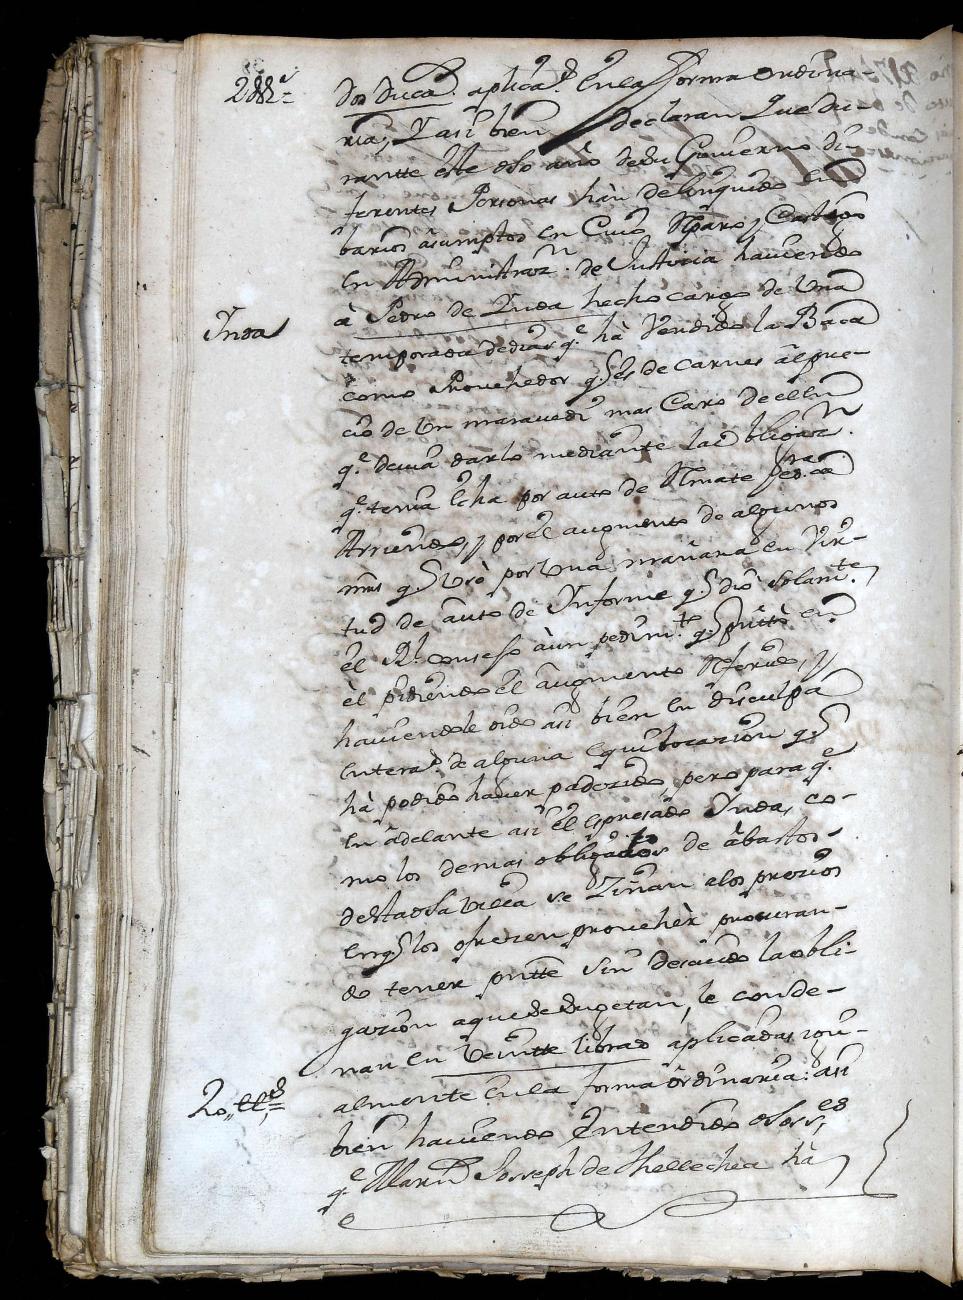 2 dd.s
dos ducas. aplicas. en la forma ordina-
ria, Y asi bien declaran que du-
rantte este dho año de su Govierno di-
ferentes Personas hàn delinquido en
barios asumptos en cuio Reparo, y Castigo
en Administraz.n de Justicia haviendo
Inda
à Pedro de Inda hecho cargo de una
temporada de dias q.e hà vendido la Baca
como Provehedor q.e es de carnes al pre-
cio de un maravedi mas caro de el en
q.e devia darlo mediante la obligaz.n
q.e tenia echa por auto de Remate
Arriendo, y por el augmento de algunos
mrs q.e usò por una mañana en vir-
tud de auto de Informe q.e diò solam.te
el R.l consejo à un pedim.to q.e
él pidiendo el augmento referido, y
haviendole oido asi bien en disculpa
de alguna equibocacion q.e
hà podido haver padezido, pero para q.e
en adelante asi el espresado Inda, co-
mo los demas obligados de abastos
de esta dha villa se Ziñan a los prezios
en q.e los ofrezen provehèr procuran-
do tener sin dejando la obli-
gazion a que se sugetan, le conde-
nan en Veintte libras aplicadas igu-
20,, ll.s
almente en la forma òrdinaria: asi
bien haviendo entendido dhos ss.es
q.e Martin Joseph de Thellechea hà